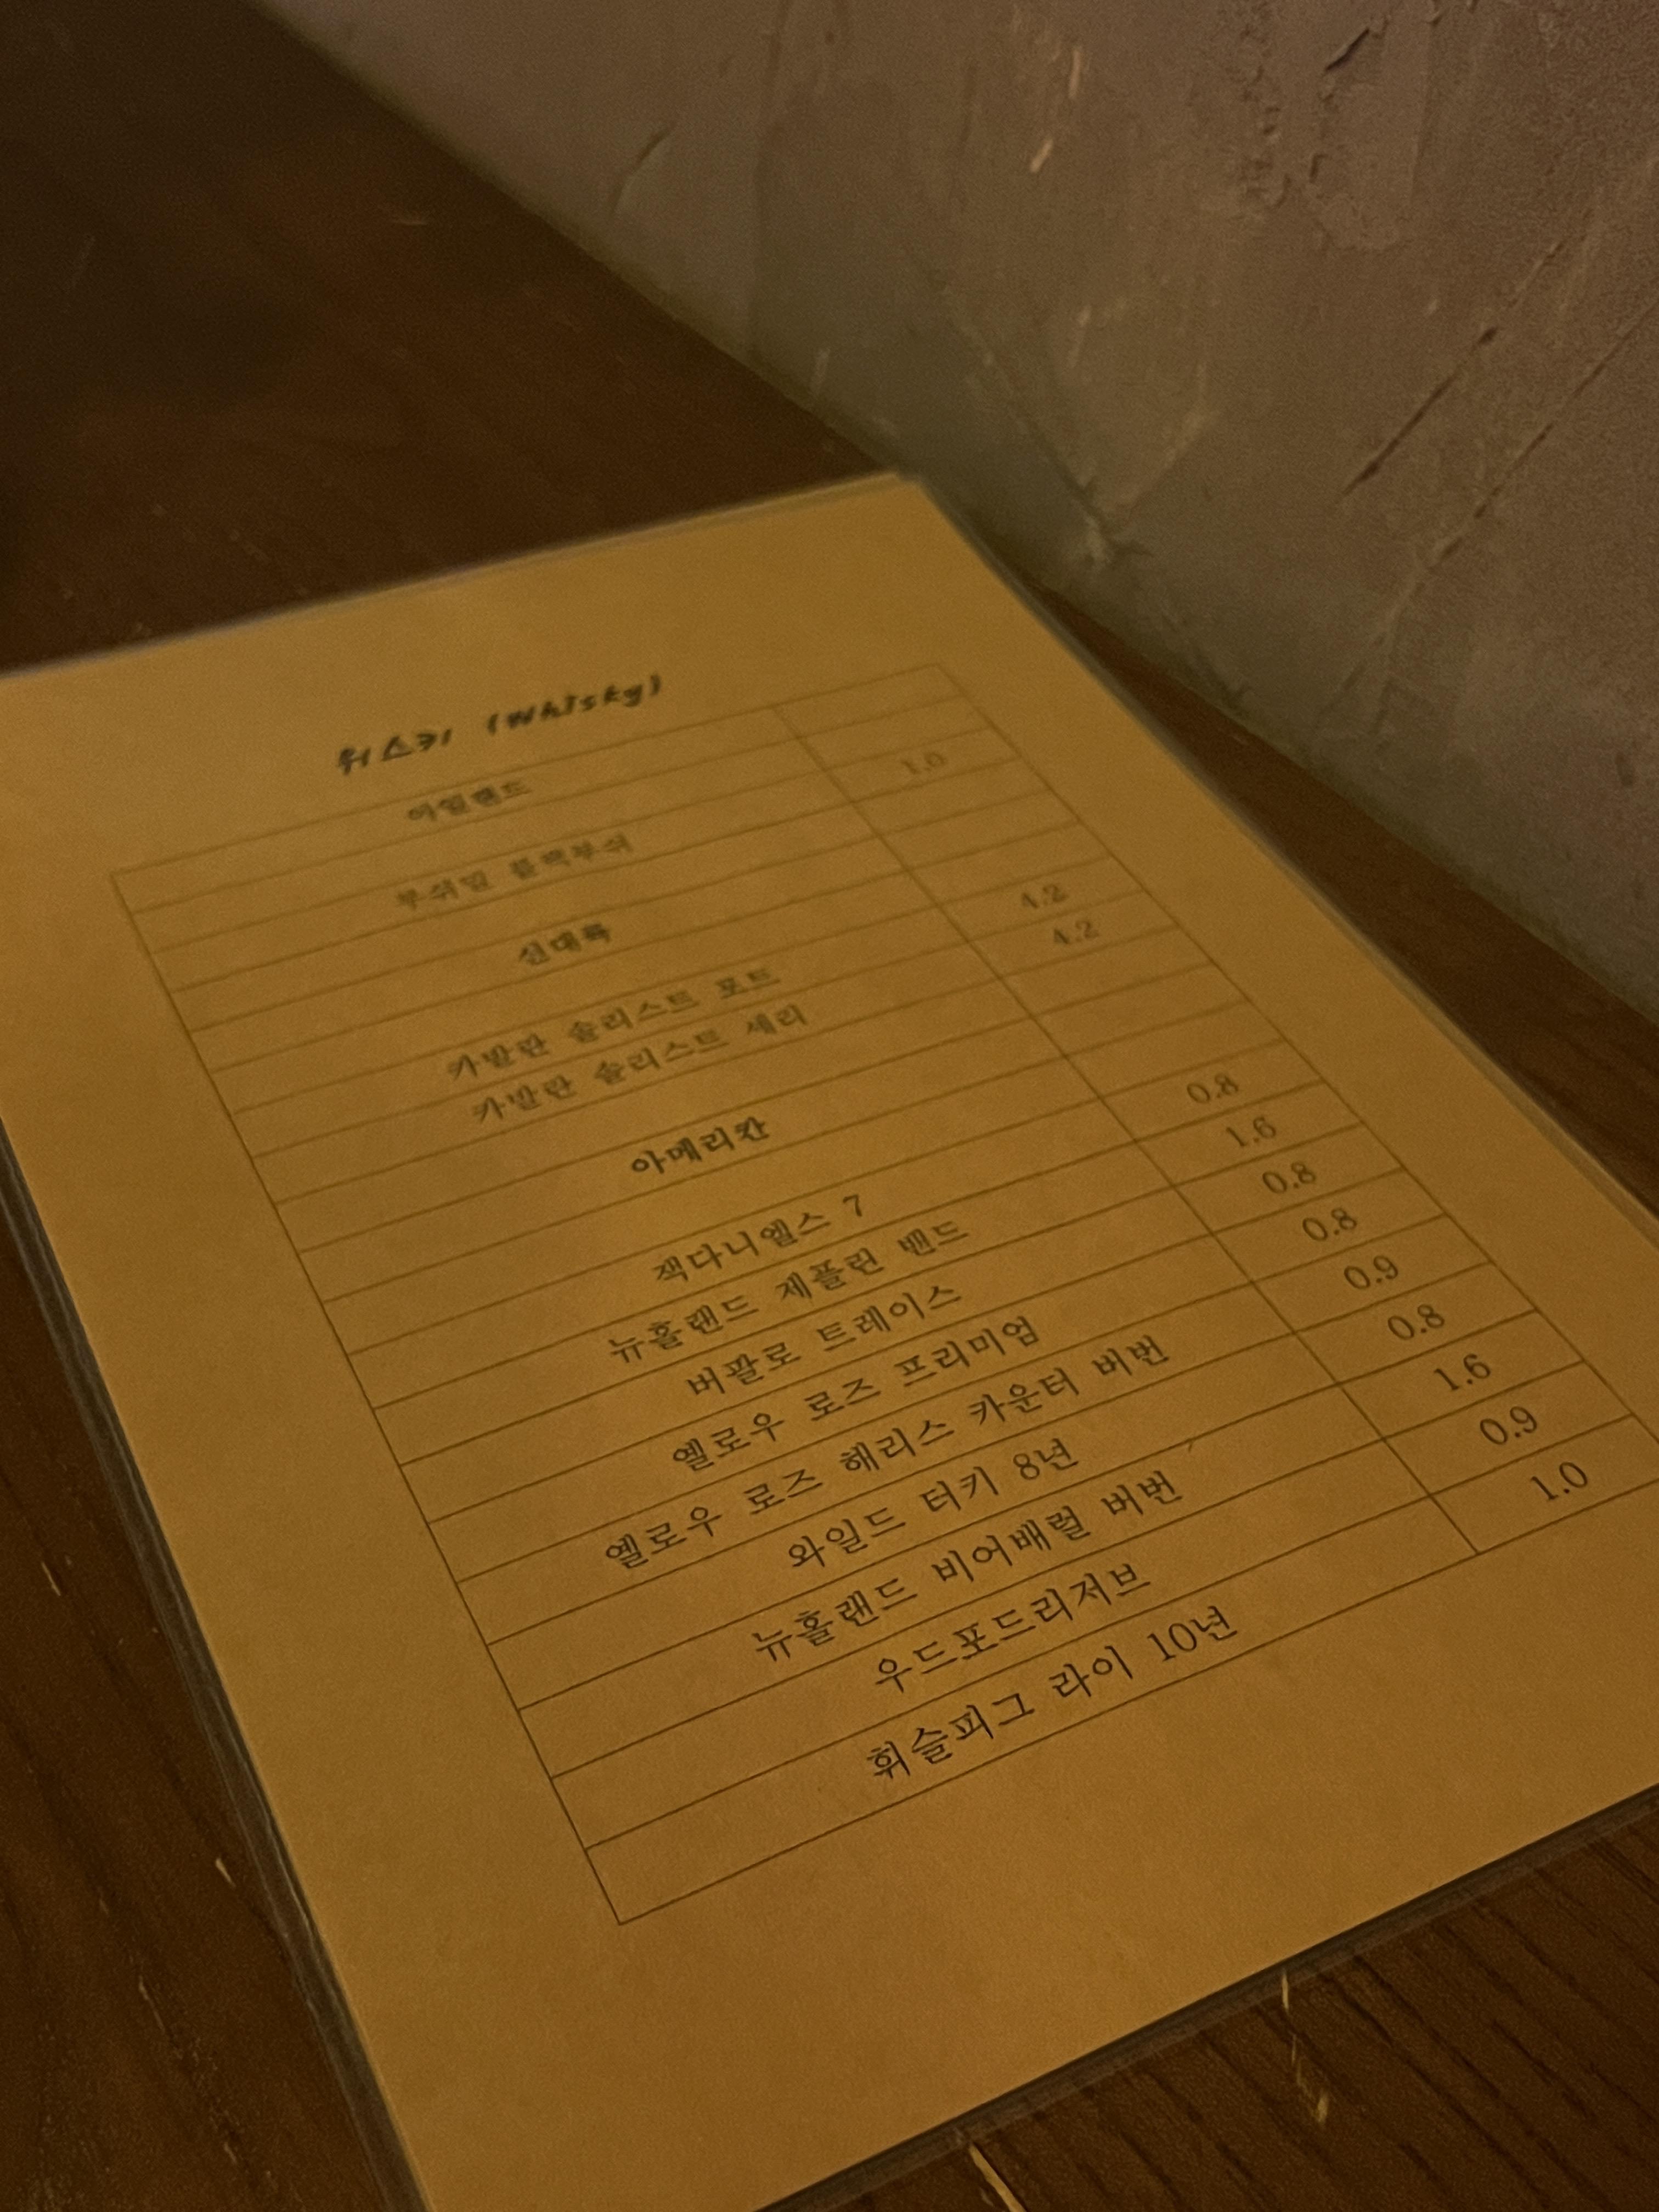 위스키 (Whisky)
아일랜드
부쉬밀 블랙부쉬 1.0
신대륙
카발란 솔리스트 포트 4.2
카발란 솔리스트 셰리 4.2
아메리칸
잭다니엘스 7 0.8
뉴홀랜드 제플린 밴드 1.6
버팔로 트레이스 0.8
옐로우 로즈 프리미엄 0.8
옐로우 로즈 해리스 카운터 버번 0.9
와일드 터키 8년 0.8
뉴홀랜드 비어배럴 버번 1.6
우드포드리저브 0.9
휘슬피그 라이 10년 1.0